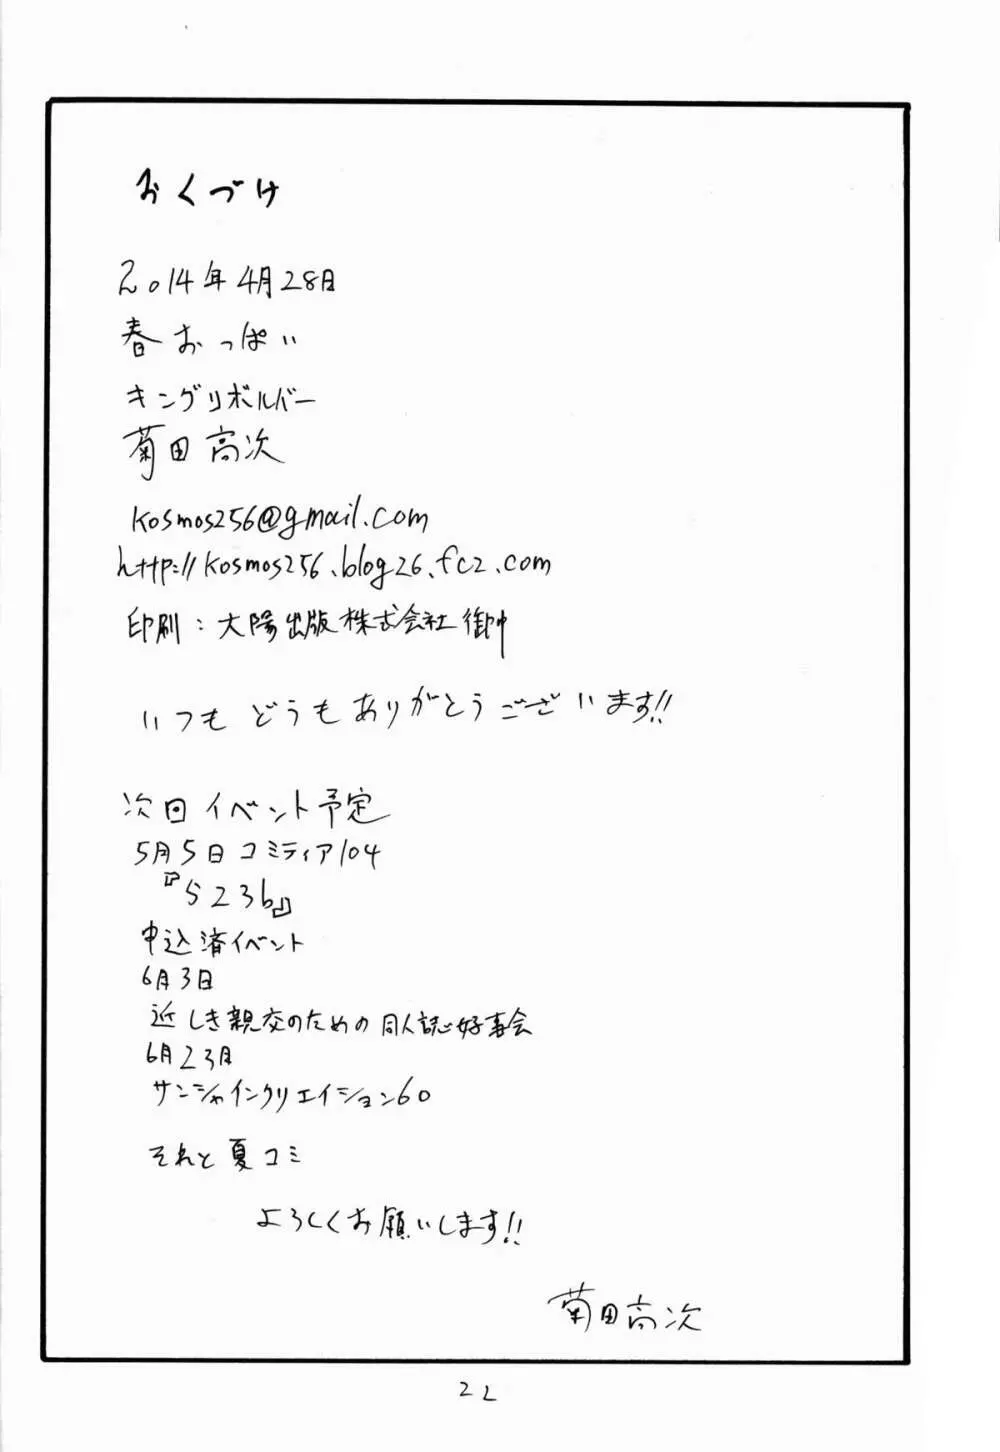 おくづけ
2014年4月28日
春おっぱい
キングリボルバー
菊田高次
kosmos256@gmail.com
http://kosmos256.blog26.fc2.com
印刷:大陽出版株式会社御中
いつもどうもありがとうございます!!
次回イベント予定
5月5日コミティア104
『S23b』
申込済イベント
6月3日
近しき親交のための同人誌好事会
6月23月
サンシャインクリエイション60
それと夏コミ
よろしくお願いします!!
菊田高次
22